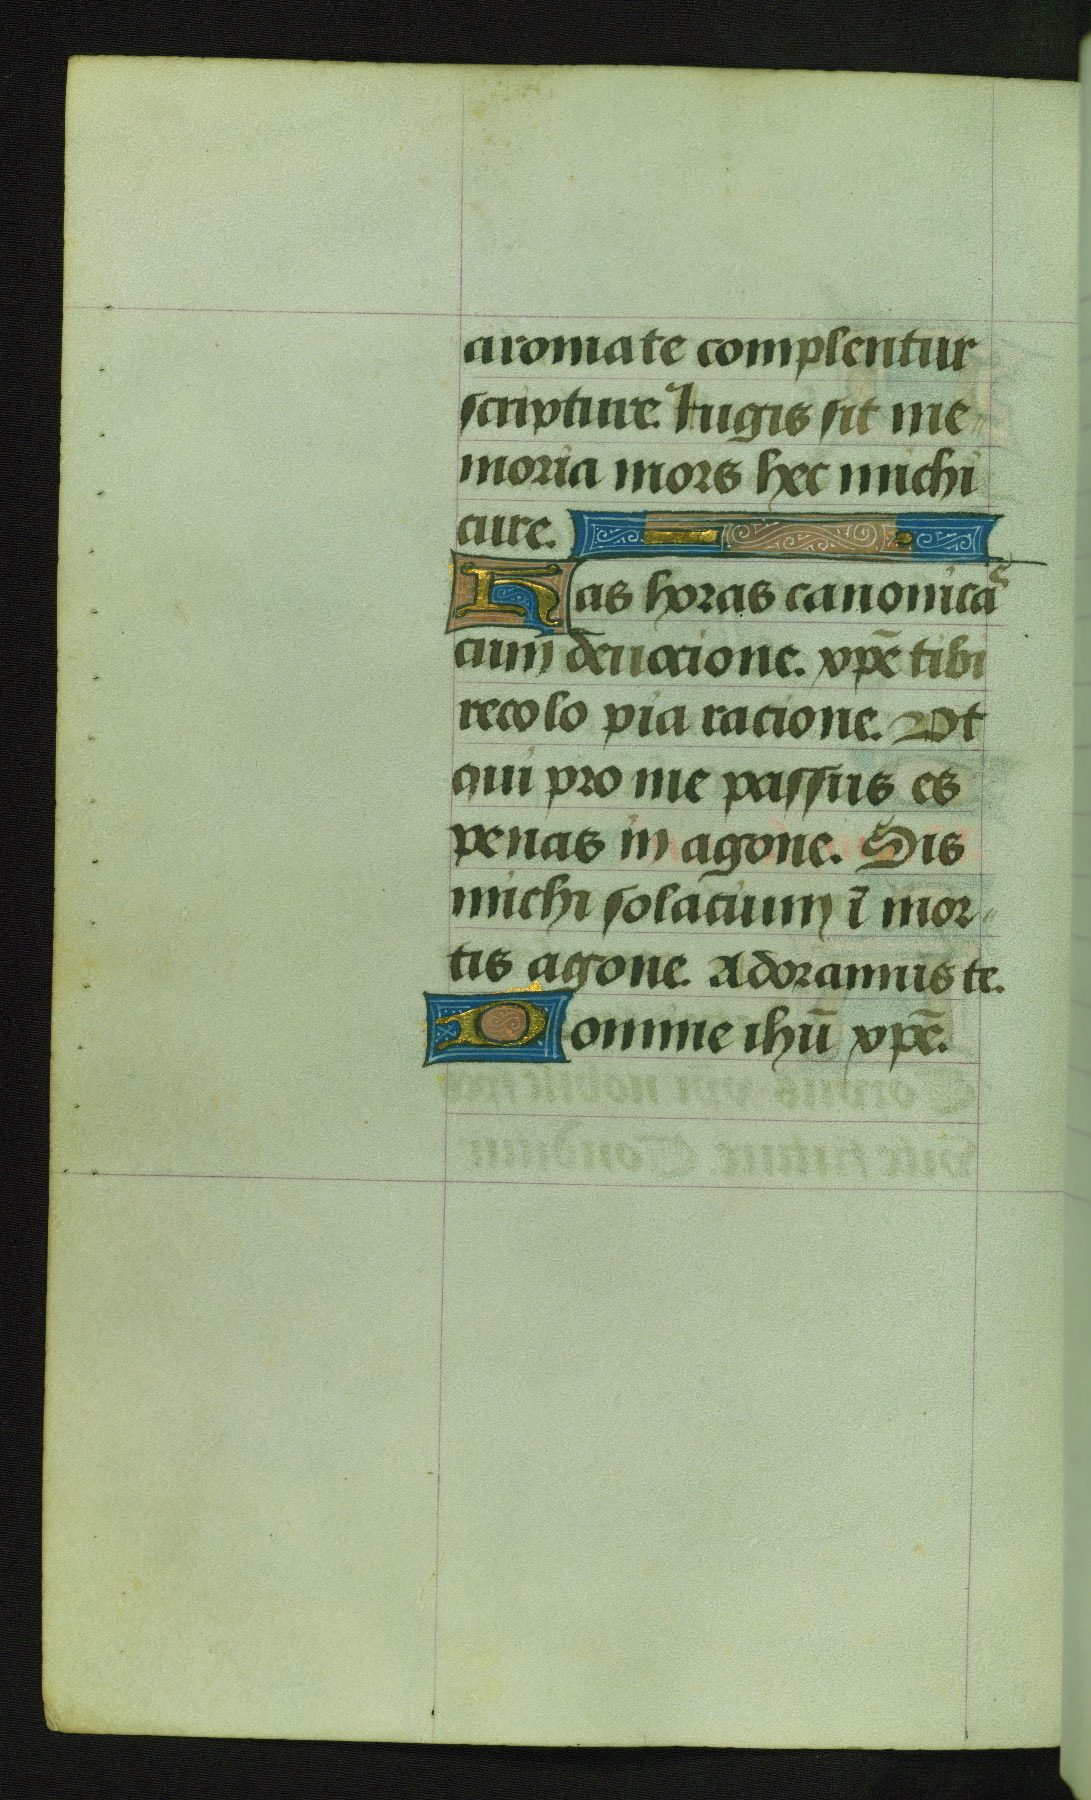 aromate complentur
scripture. Iugis sit me
moria mors hec michi
cure.
Has horas canonicas
cum deuocione. xp̄e tibi
recolo pia racione. Vt
qui pro me passus es
penas in agone. Sis
michi solacium ī mor-
tis agone. Adoramus te.
Domine ihū xp̄e.